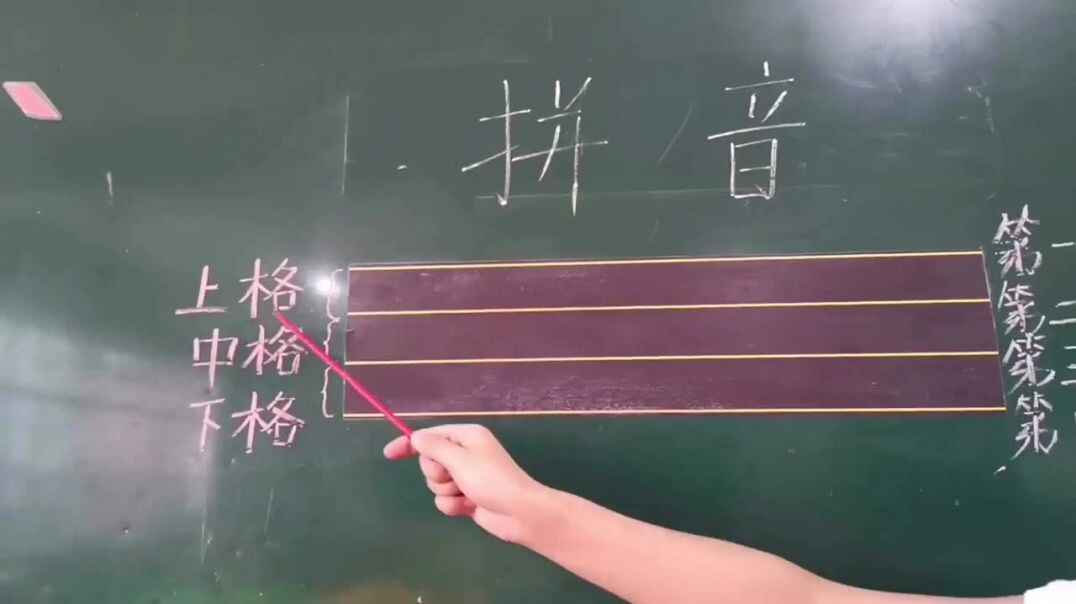 拼音
上格
中格
下格
第一
第二
第三
第